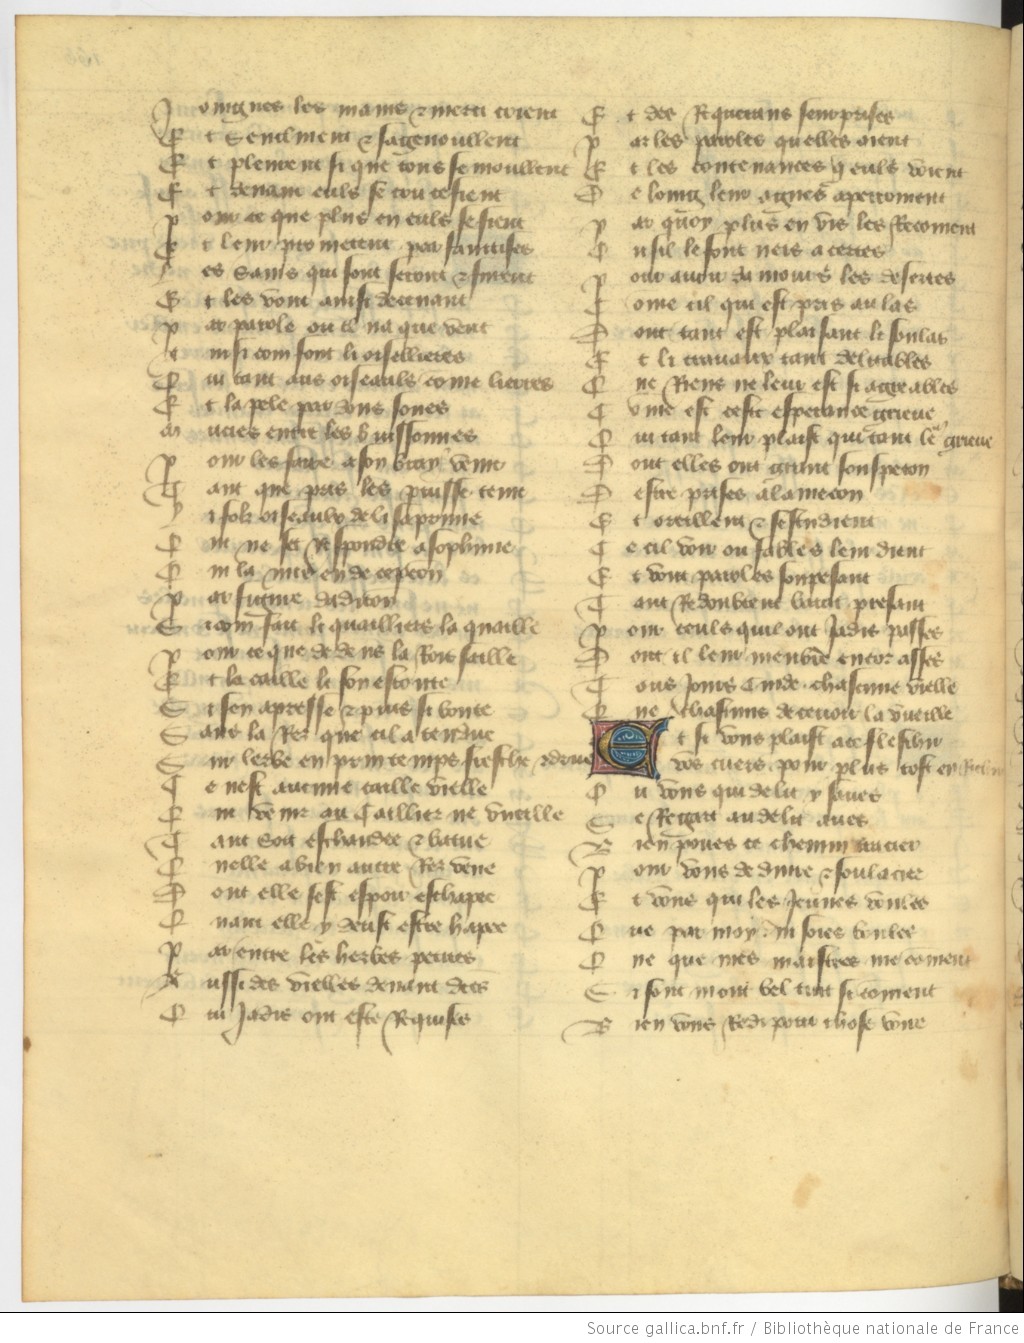 Joingnes les mains & merci crient
Et senclinent & sagenoullent
Et pleurent si que tous se moullent
Et deuant euls se crucefient
Pour ce que plus en euls se fient
Et leur prometent par faintises
Les sains qui sont seront & furent
Et les vont ainsi deceuant
Par parole ou il na que vent
Ainsi com font li oiselieres
Qui tant aus oiseauls come lierres
Et lapele par dous sones
Mucies entre les buissonnes
Pour les faire a son bray venir
Tant que pris les puisse tenir
Li fols oiseaulx de li saprime
Qui ne set respondre a sophime
Qui la mis en decepcion
Par figure dadicion
Si com fait li quailliers la quaille
Pour ce que dedens la roit saille
Et la caille li son escoute
Si sen apresse & puis si boute
Sous la rez que cil a tendue
Sur lerbe en printemps fresche & drue
Ce nest aucune caille vielle
Qui venir au cailler ne vueille
Tant soit eschaudee & batue
Quelle a bien autre rez veue
Dont elle sest espoir eschapee
Quant elle y deust estre hapee
Par entre les herbes petites
Aussi des vielles deuant dites
Qui jadis ont este requises
Et des requerans seurprises
Par les paroles quelles oient
Et les contenances q euls voient
De loing leur agues apercoiuent
Par quoy plus en vis les recoiuent
Ou sil le font neis a certes
Pour auoir damours les desertes
Come cil qui est pris au las
Dont tant est plaisant li soulas
Et li trauaux tant delitables
Que riens ne leur est si agreables
Come est ceste esperance grieue
Qui tant leur plaist qui tant le grieue
Dont elles ont grant souspecon
Destre prises a lamecon
Et oreillent & sestudient
Se cil voir ou fables leur dient
Et vont paroles soupesant
Tant redoubtent barat present
Pour ceuls quil ont jadis passes
Dont il leur menbre encor asses
Tous jours cuide chascune vielle
Que chascuns deceuoir la vueille
Et si vous plaist a ce flechir
Vos cuers pour plus tost enrichir
Ou vous qui delit y saues
Se regart au delit aues
Bien poues ce chemin tracier
Pour vous deduire & soulacier
Et vous qui les jeunes voules
Que par moy ne soies boules
Que que mes maistres me coment
Si sont mout bel tuit si coment
Bien vous redi pour chose voire